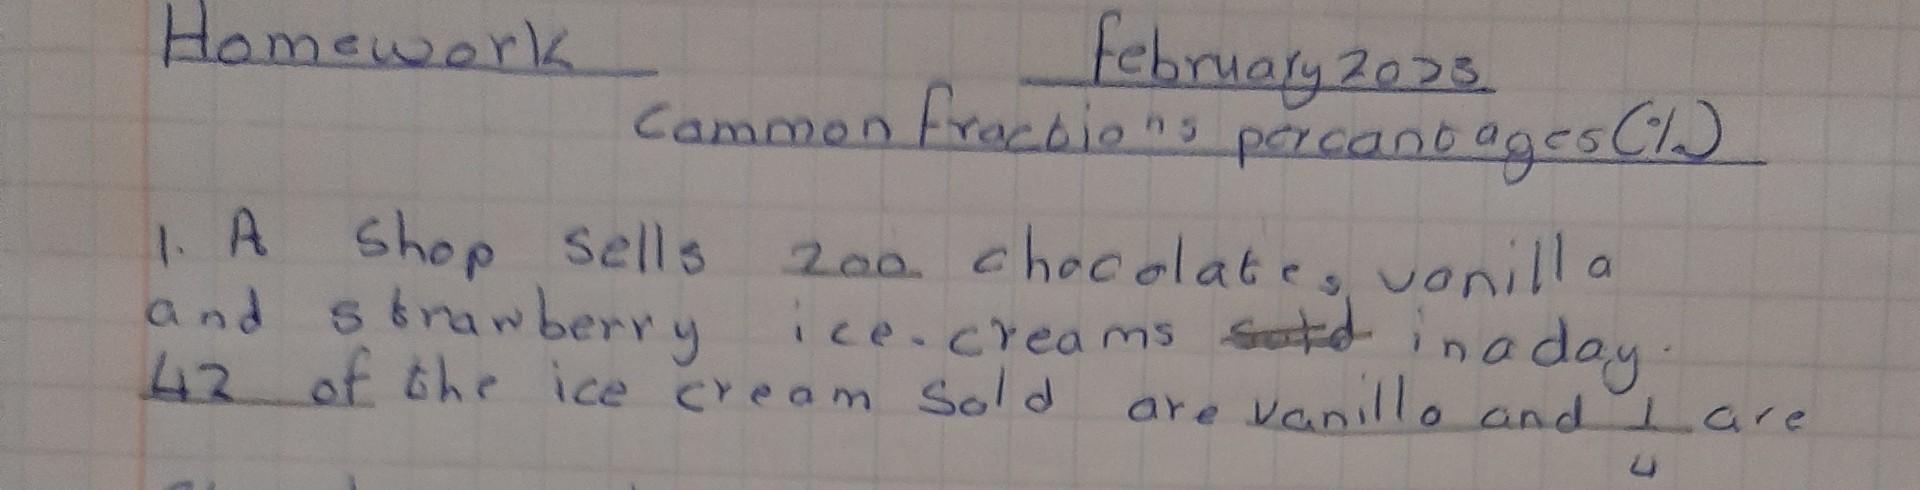 Homework February 2023
Common fractions percantages (%)
1. A shop sells 200 chocolate, vanilla
and strawberry ice-creams in a day.
42 of the ice cream sold are vanilla and 1/4 are